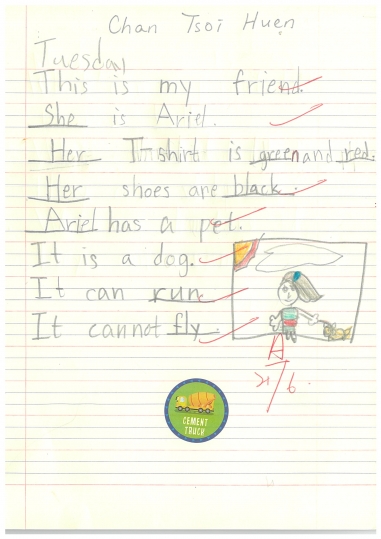 Chan Tsoi Huen
Tuesday
This is my friend.
She is Ariel.
Her T-shirt is green and red.
Her shoes are black.
Ariel has a pet.
It is a dog.
It can run.
It cannot fly.
A
21/6.
CEMENT
TRUCK